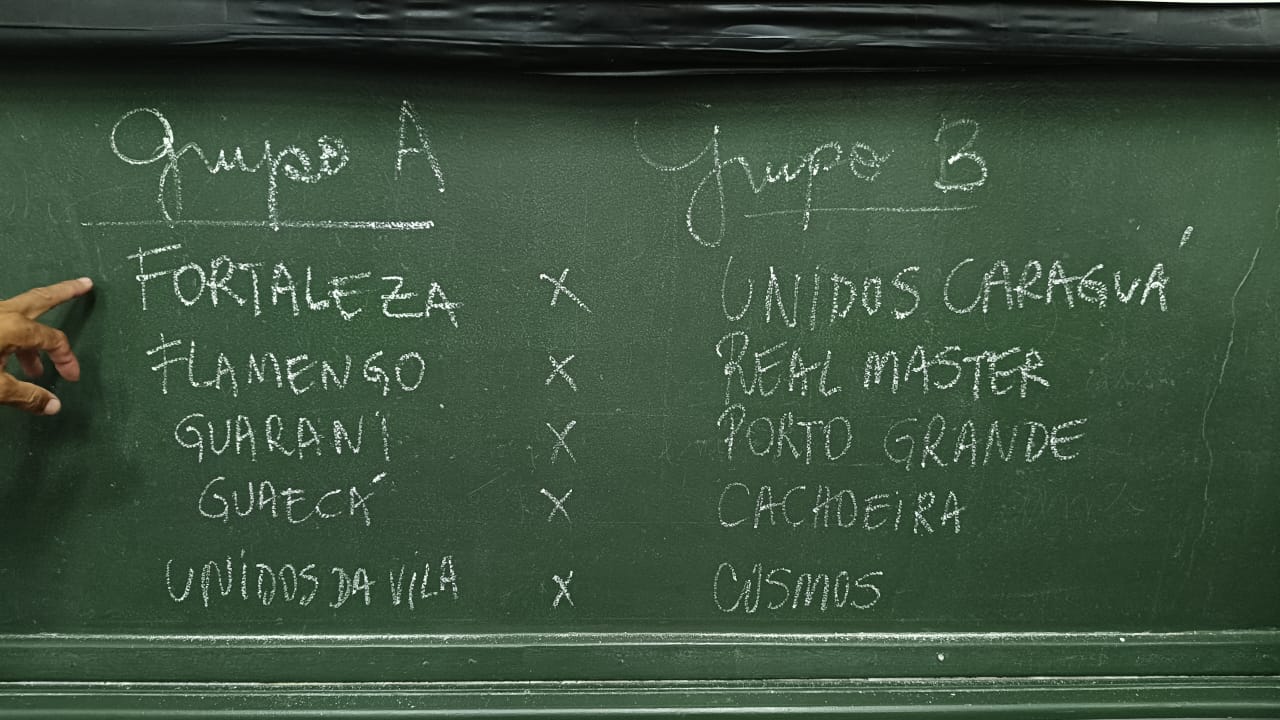 Grupo A Grupo B
FORTALEZA X UNIDOS CARAGUÁ
FLAMENGO X REAL MASTER
GUARANI X PORTO GRANDE
GUAECÁ X CACHOEIRA
UNIDOS DA VILA X COSMOS